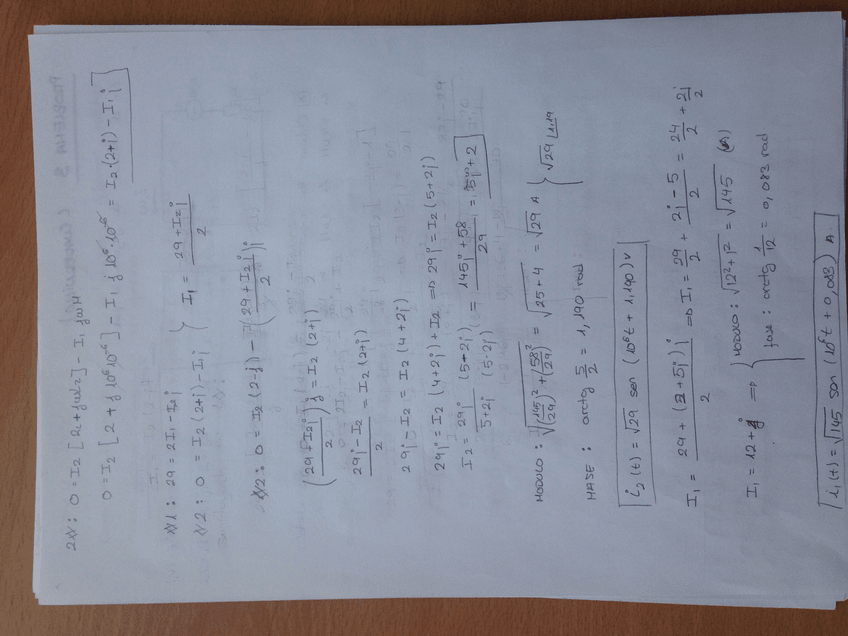 2ª: 0 = I2 [R2 + jωL2] - I1 jωM
0 = I2 [2 + j10⁶10⁻⁶] - I1 j10⁶·10⁻⁶ = I2·(2+j) - I1 j
1: 29 = 2I1 - I2 j
2: 0 = I2 (2+j) - I1 j } I1 = (29 + I2 j)/2
2: 0 = I2 (2-j) - ((29 + I2 j)/2) j
((29 + I2 j)/2) j = I2 (2+j)
(29j - I2)/2 = I2 (2+j)
29j - I2 = I2 (4+2j)
29j = I2 (4+2j) + I2 ⇒ 29j = I2 (5+2j)
I2 = 29j/(5+2j) (5-2j)/(5-2j) = (145j + 58)/29 = 5j + 2
MODULO: √((145/29)² + (58/29)²) = √(25+4) = √29 A
FASE: arctg 5/2 = 1,190 rad } √29 |1,19
i2(t) = √29 sen (10⁶t + 1,190) V
I1 = (29 + (2+5j) j)/2 ⇒ I1 = 29/2 + (2j - 5)/2 = 24/2 + 2j/2
I1 = 12 + j ⇒ { MODULO: √(12² + 1²) = √145 (A)
fase: arctg 1/12 = 0,083 rad
i1(t) = √145 sen (10⁶t + 0,083) A.